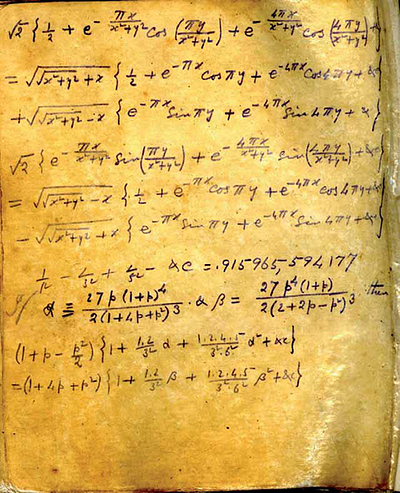 √2 { 1/2 + e^(- πx/(x²+y²)) cos (πy/(x²+y²)) + e^(- 4πx/(x²+y²)) cos (4πy/(x²+y²)) + &c }
= √(√(x²+y²) + x) { 1/2 + e^(-πx) cos πy + e^(-4πx) cos 4πy + &c }
+ √(√(x²+y²) - x) { e^(-πx) sin πy + e^(-4πx) sin 4πy + &c }
√2 { e^(- πx/(x²+y²)) sin (πy/(x²+y²)) + e^(- 4πx/(x²+y²)) sin (4πy/(x²+y²)) + &c }
= √(√(x²+y²) - x) { 1/2 + e^(-πx) cos πy + e^(-4πx) cos 4πy + &c }
- √(√(x²+y²) + x) { e^(-πx) sin πy + e^(-4πx) sin 4πy + &c }
1/1² - 1/3² + 1/5² - &c = .915965,594177
If α = 27p(1+p)⁴/2(1+4p+p²)³ . & β = 27p⁴(1+p)/2(2+2p-p²)³ then
(1+p - p²/2) { 1 + 1.2/3² α + 1.2.4.5/3².6² α² + &c }
= (1+4p+p²) { 1 + 1.2/3² β + 1.2.4.5/3².6² β² + &c }